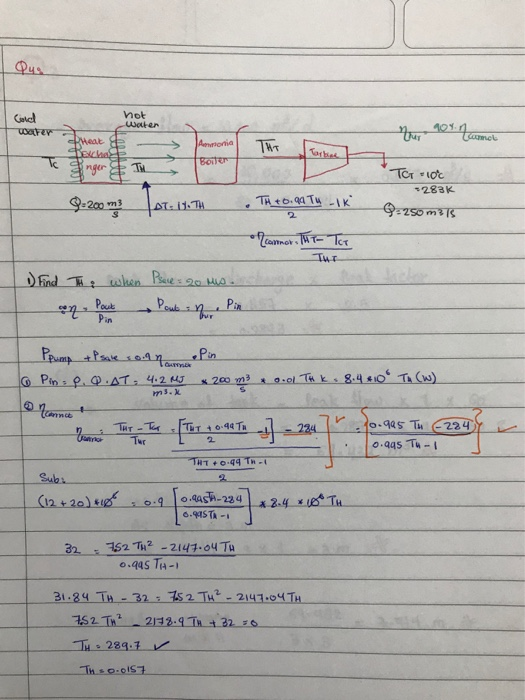 Q4:
Cold water
hot water
Heat Exchanger
Ammonia Boiler
T_HT
Turbine
η_ovr = 90% η_carnot
T_C
T_H
T_CT = 10c
= 283K
Q = 200 m3/s
ΔT = 1% T_H
• (T_H + 0.99 T_H)/2 - 1K
Q = 250 m3/s
• η_carnot = (T_HT - T_CT)/T_HT
1) Find T_H : when P_sale = 20 MW.
η = Pout/Pin → Pout = η_ovr . Pin
P_pump + P_sale = 0.9 η_carnot . Pin
① Pin = ρ. Q. ΔT = 4.2 MJ/m3.K * 200 m3/s * 0.01 T_H K = 8.4*10^6 T_H (W)
② η_carnot:
η_carnot = (T_HT - T_CT)/T_HT = ([(T_HT + 0.99 T_H)/2 - 1] - 284)/((T_HT + 0.99 T_H - 1)/2) = {(0.995 T_H - 284)/(0.995 T_H - 1)} ✓
Sub:
(12 + 20) *10^6 = 0.9 [(0.995T_H - 284)/(0.995T_H - 1)] * 8.4 * 10^6 T_H
32 = (7.52 T_H² - 2147.04 T_H)/(0.995 T_H - 1)
31.84 T_H - 32 = 7.52 T_H² - 2147.04 T_H
7.52 T_H² - 2178.9 T_H + 32 = 0
T_H = 289.7 ✓
T_H = 0.0157